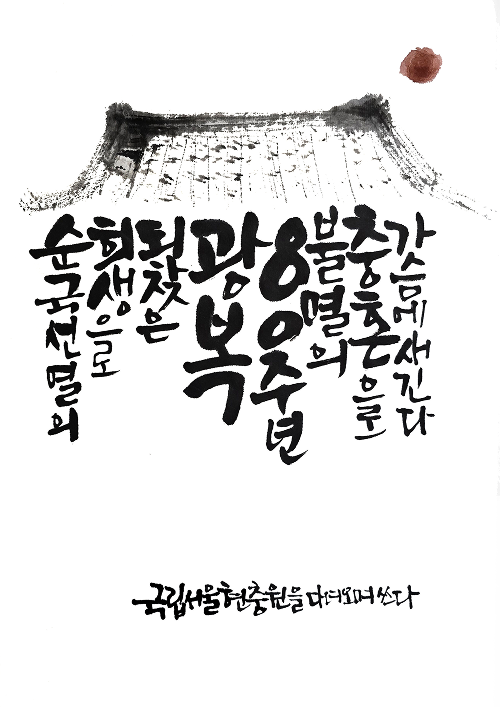 순국선열의
희생으로
되찾은
광복
80주년
불멸의
충혼으로
가슴에새긴다
국립서울현충원을 다녀오며 쓰다